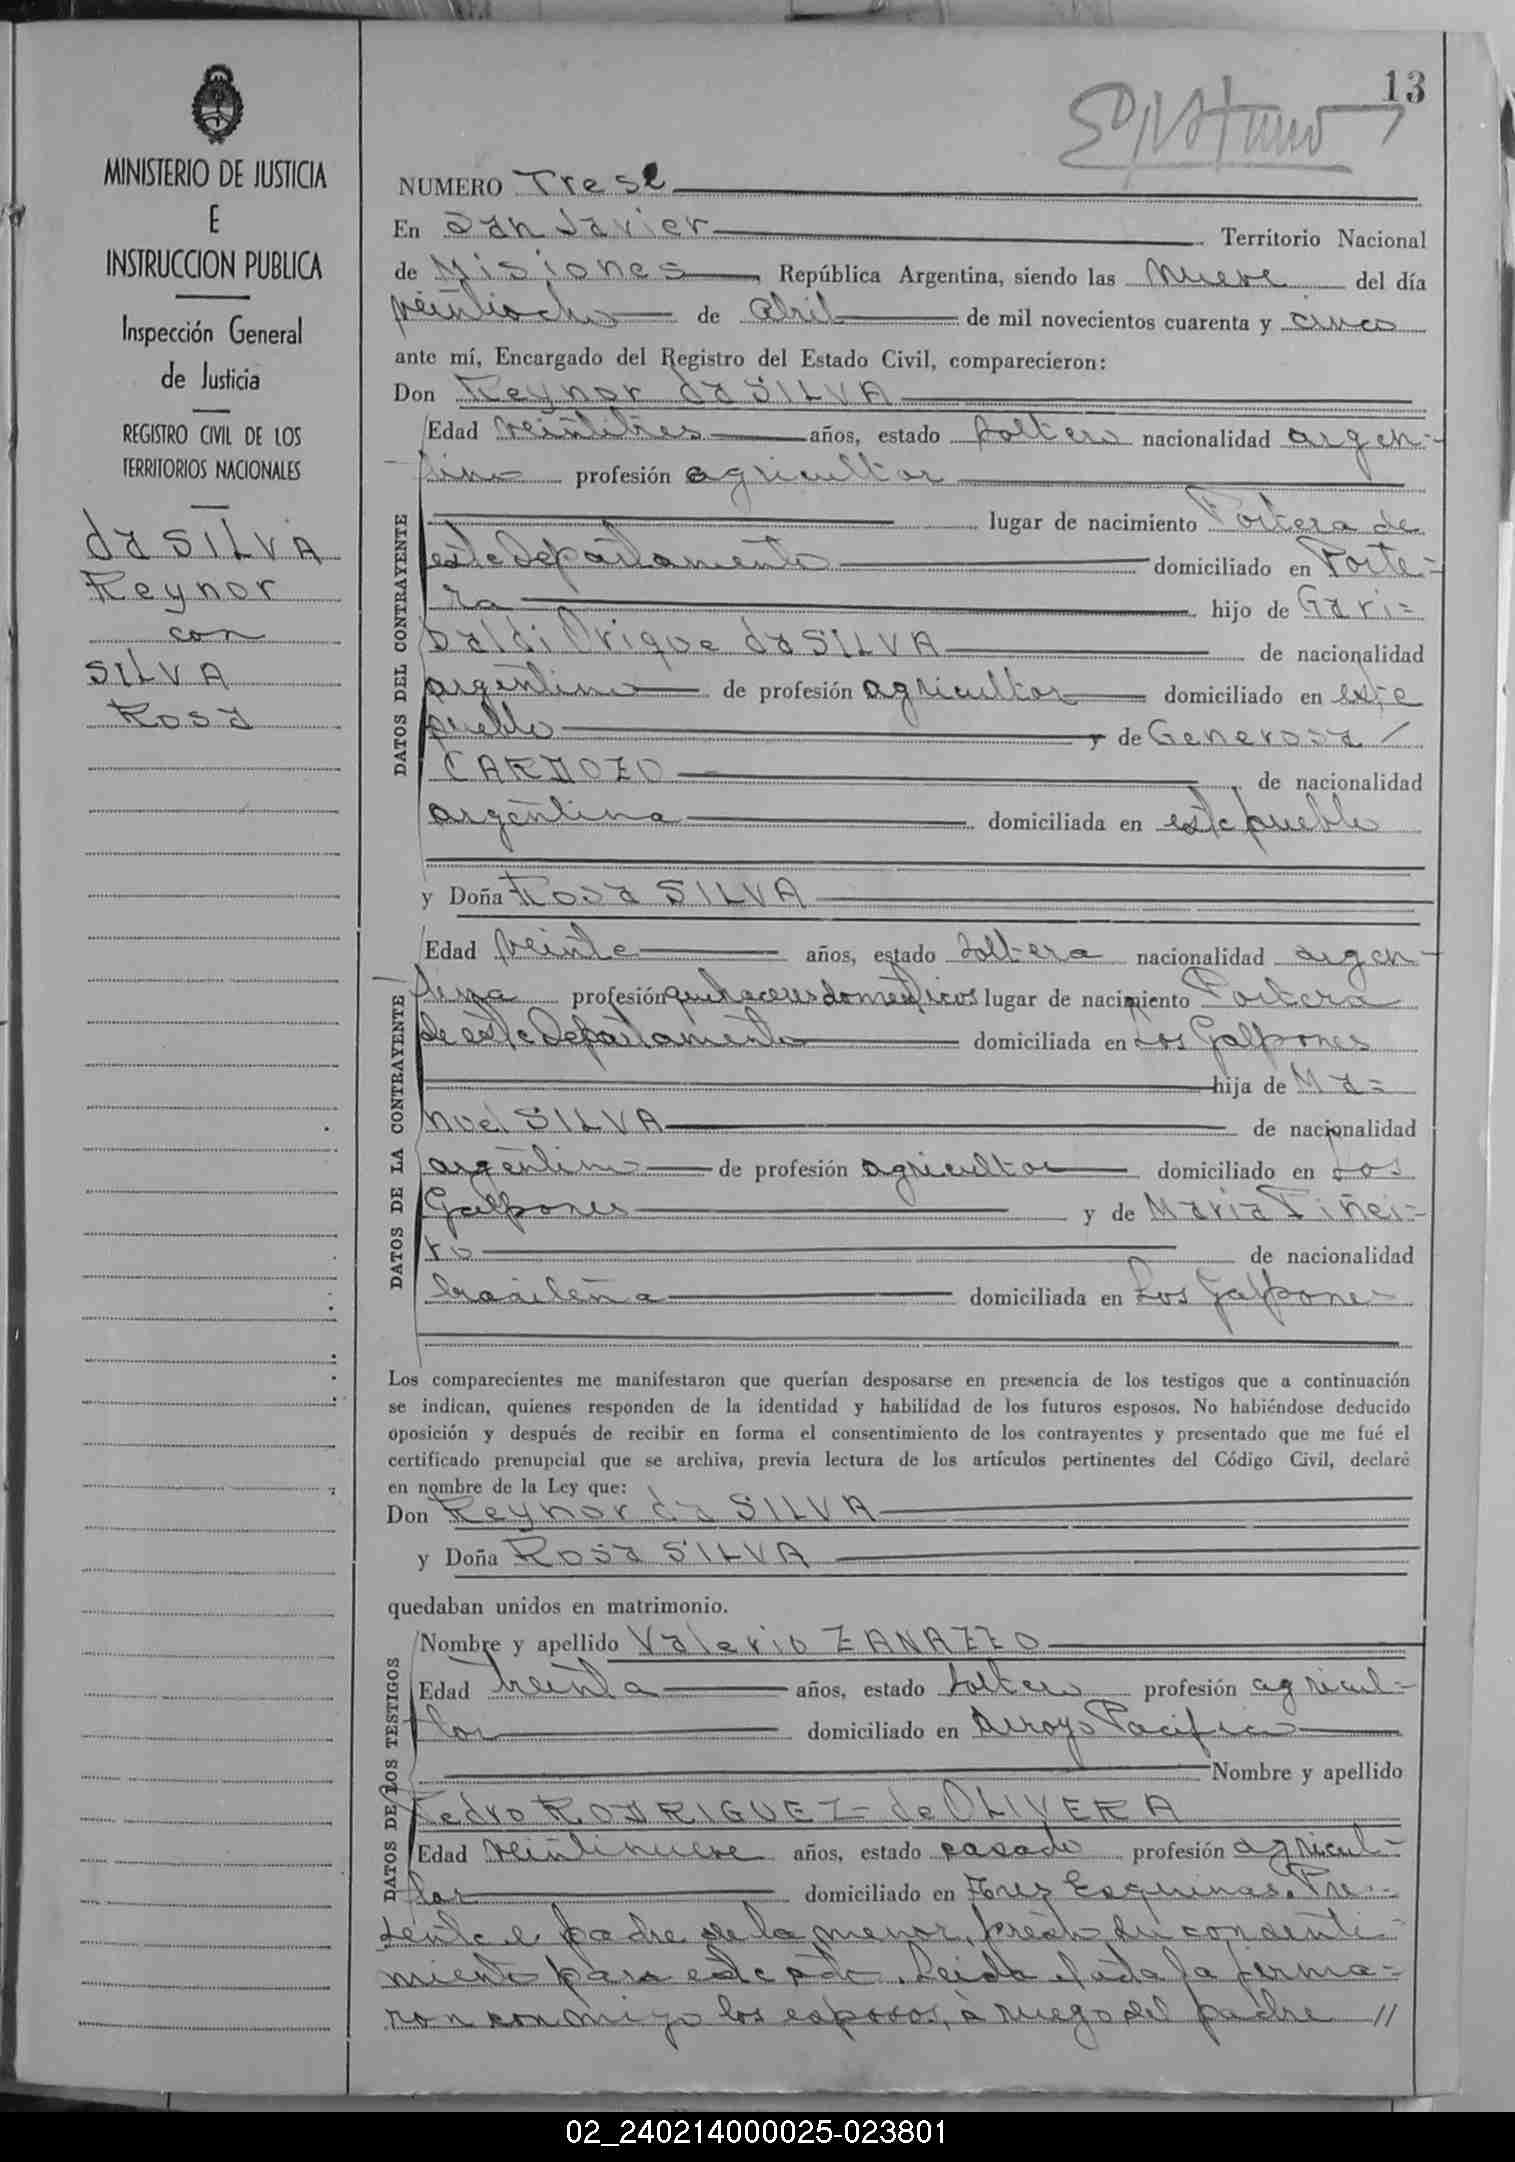 13
MINISTERIO DE JUSTICIA
E
INSTRUCCION PUBLICA
Inspección General
de Justicia
REGISTRO CIVIL DE LOS
TERRITORIOS NACIONALES
da SILVA
Reynor
con
SILVA
Rosa
NUMERO Trese
En San Javier Territorio Nacional
de Misiones, República Argentina, siendo las nueve del día
veintiocho de abril de mil novecientos cuarenta y cinco
ante mí, Encargado del Registro del Estado Civil, comparecieron:
Don Reynor da SILVA
DATOS DEL CONTRAYENTE
Edad veintitres años, estado soltero nacionalidad argen-
tino profesión agricultor
lugar de nacimiento Portera de
este Departamento domiciliado en Porte=
ra hijo de Gari=
baldi Orique da SILVA de nacionalidad
argentino de profesión agricultor domiciliado en este
pueblo y de Generosa /
CARDOZO de nacionalidad
argentina domiciliada en este pueblo
y Doña Rosa SILVA
DATOS DE LA CONTRAYENTE
Edad veinte años, estado soltera nacionalidad argen-
tina profesión quehaceres domesticos lugar de nacimiento Portera
de este Departamento domiciliada en Los Galpones
hija de Ma=
nuel SILVA de nacionalidad
argentino de profesión agricultor domiciliado en Los
Galpones y de Maria Piñei=
ro de nacionalidad
brasileña domiciliada en Los Galpones
Los comparecientes me manifestaron que querían desposarse en presencia de los testigos que a continuación
se indican, quienes responden de la identidad y habilidad de los futuros esposos. No habiéndose deducido
oposición y después de recibir en forma el consentimiento de los contrayentes y presentado que me fué el
certificado prenupcial que se archiva, previa lectura de los artículos pertinentes del Código Civil, declaré
en nombre de la Ley que:
Don Reynor da SILVA
y Doña Rosa SILVA
quedaban unidos en matrimonio.
DATOS DE LOS TESTIGOS
Nombre y apellido Valerio ZANAZZO
Edad treinta años, estado soltero profesión agricul-
tor domiciliado en Arroyo Pacifico
Nombre y apellido
Pedro RODRIGUEZ de OLIVERA
Edad veintinueve años, estado casado profesión agricul-
tor domiciliado en Tres Esquinas. Pre-
sente el padre de la menor, presta su consenti-
miento para este acto. Leida el acta la firma=
ron conmigo los esposos, a ruego del padre //
02_240214000025-023801